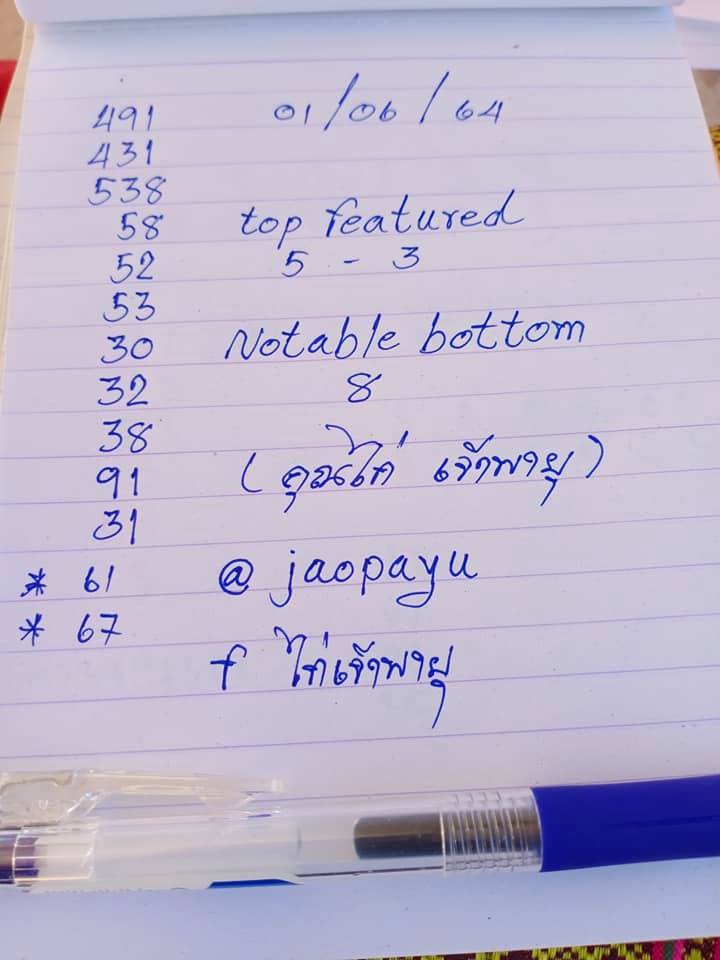 491
431
538
58
52
53
30
32
38
91
31
* 61
* 67
01/06/64
top featured
5 - 3
Notable bottom
8
(คุณไก่ เจ้าพายุ)
@ jaopayu
f ไก่เจ้าพายุ